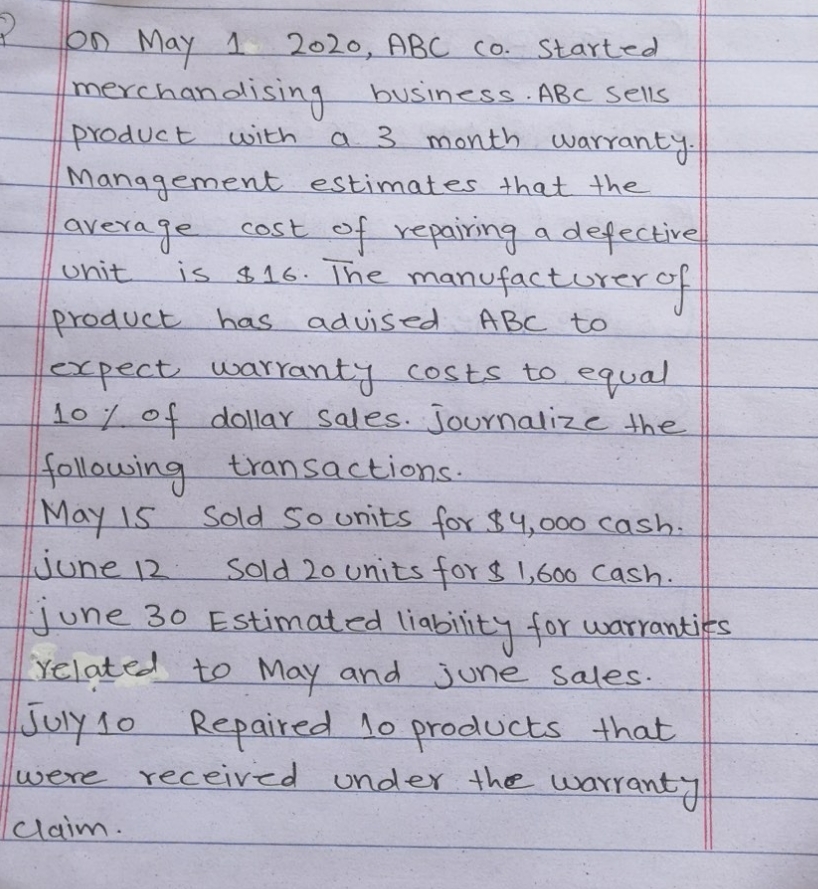 ? On May 1 2020, ABC co. Started
merchandising business. ABC sells
product with a 3 month warranty.
Management estimates that the
average cost of repairing a defective
unit is $16. The manufacturer of
product has advised ABC to
expect warranty costs to equal
10% of dollar sales. journalize the
following transactions.
May 15 Sold 50 units for $4,000 cash.
june 12 Sold 20 units for $1,600 cash.
june 30 Estimated liability for warranties
related to May and june sales.
July 10 Repaired 10 products that
were received under the warranty
claim.